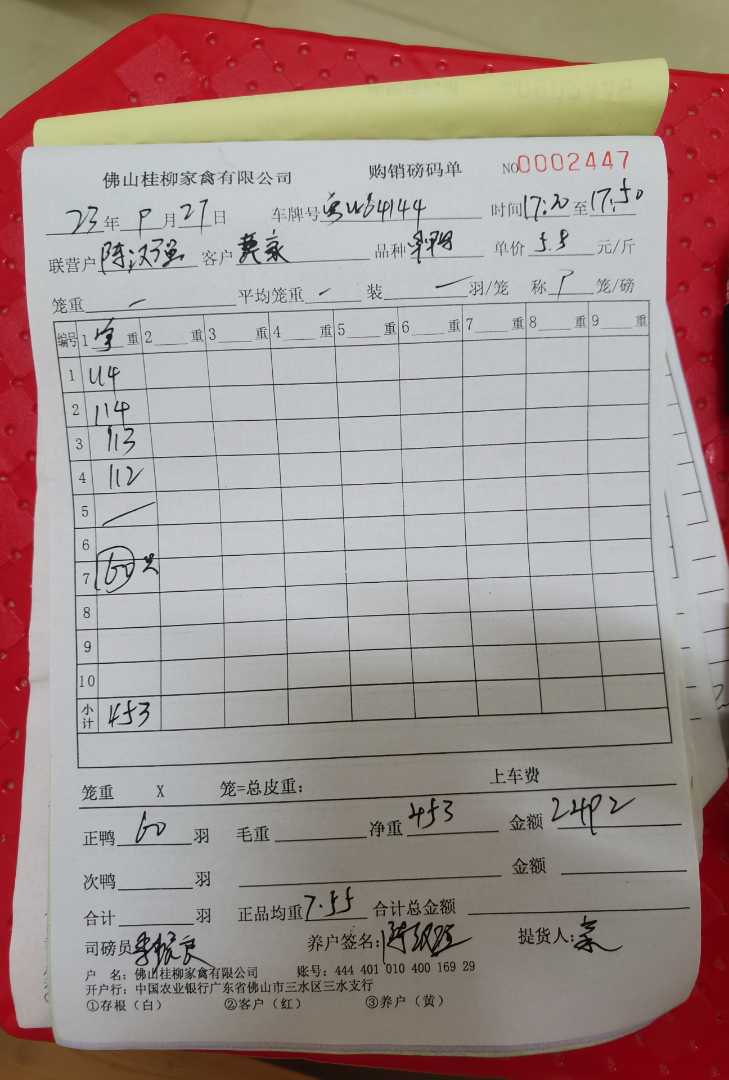 佛山桂柳家禽有限公司 购销磅码单 NO0002447
23年 9月27日 车牌号 64144 时间17:20至17:50
联营户 陈汉强 客户 单价 5.5 元/斤
笼重 一 平均笼重 一 装 一 羽/笼 称 笼/磅
编号 1 重 2 重 3 重 4 重 5 重 6 重 7 重 8 重 9 重
1 114
2 114
3 113
4 112
5
6
7 60只
8
9
10
小计 453
笼重 X 笼=总皮重: 上车费
正鸭 60 羽 毛重 净重 453 金额 2492
次鸭 羽 金额
合计 羽 正品均重 7.55 合计总金额
司磅员 养户签名: 提货人:
户 名: 佛山桂柳家禽有限公司 账号: 444 401 010 400 169 29
开户行: 中国农业银行广东省佛山市三水区三水支行
①存根（白） ②客户（红） ③养户（黄）